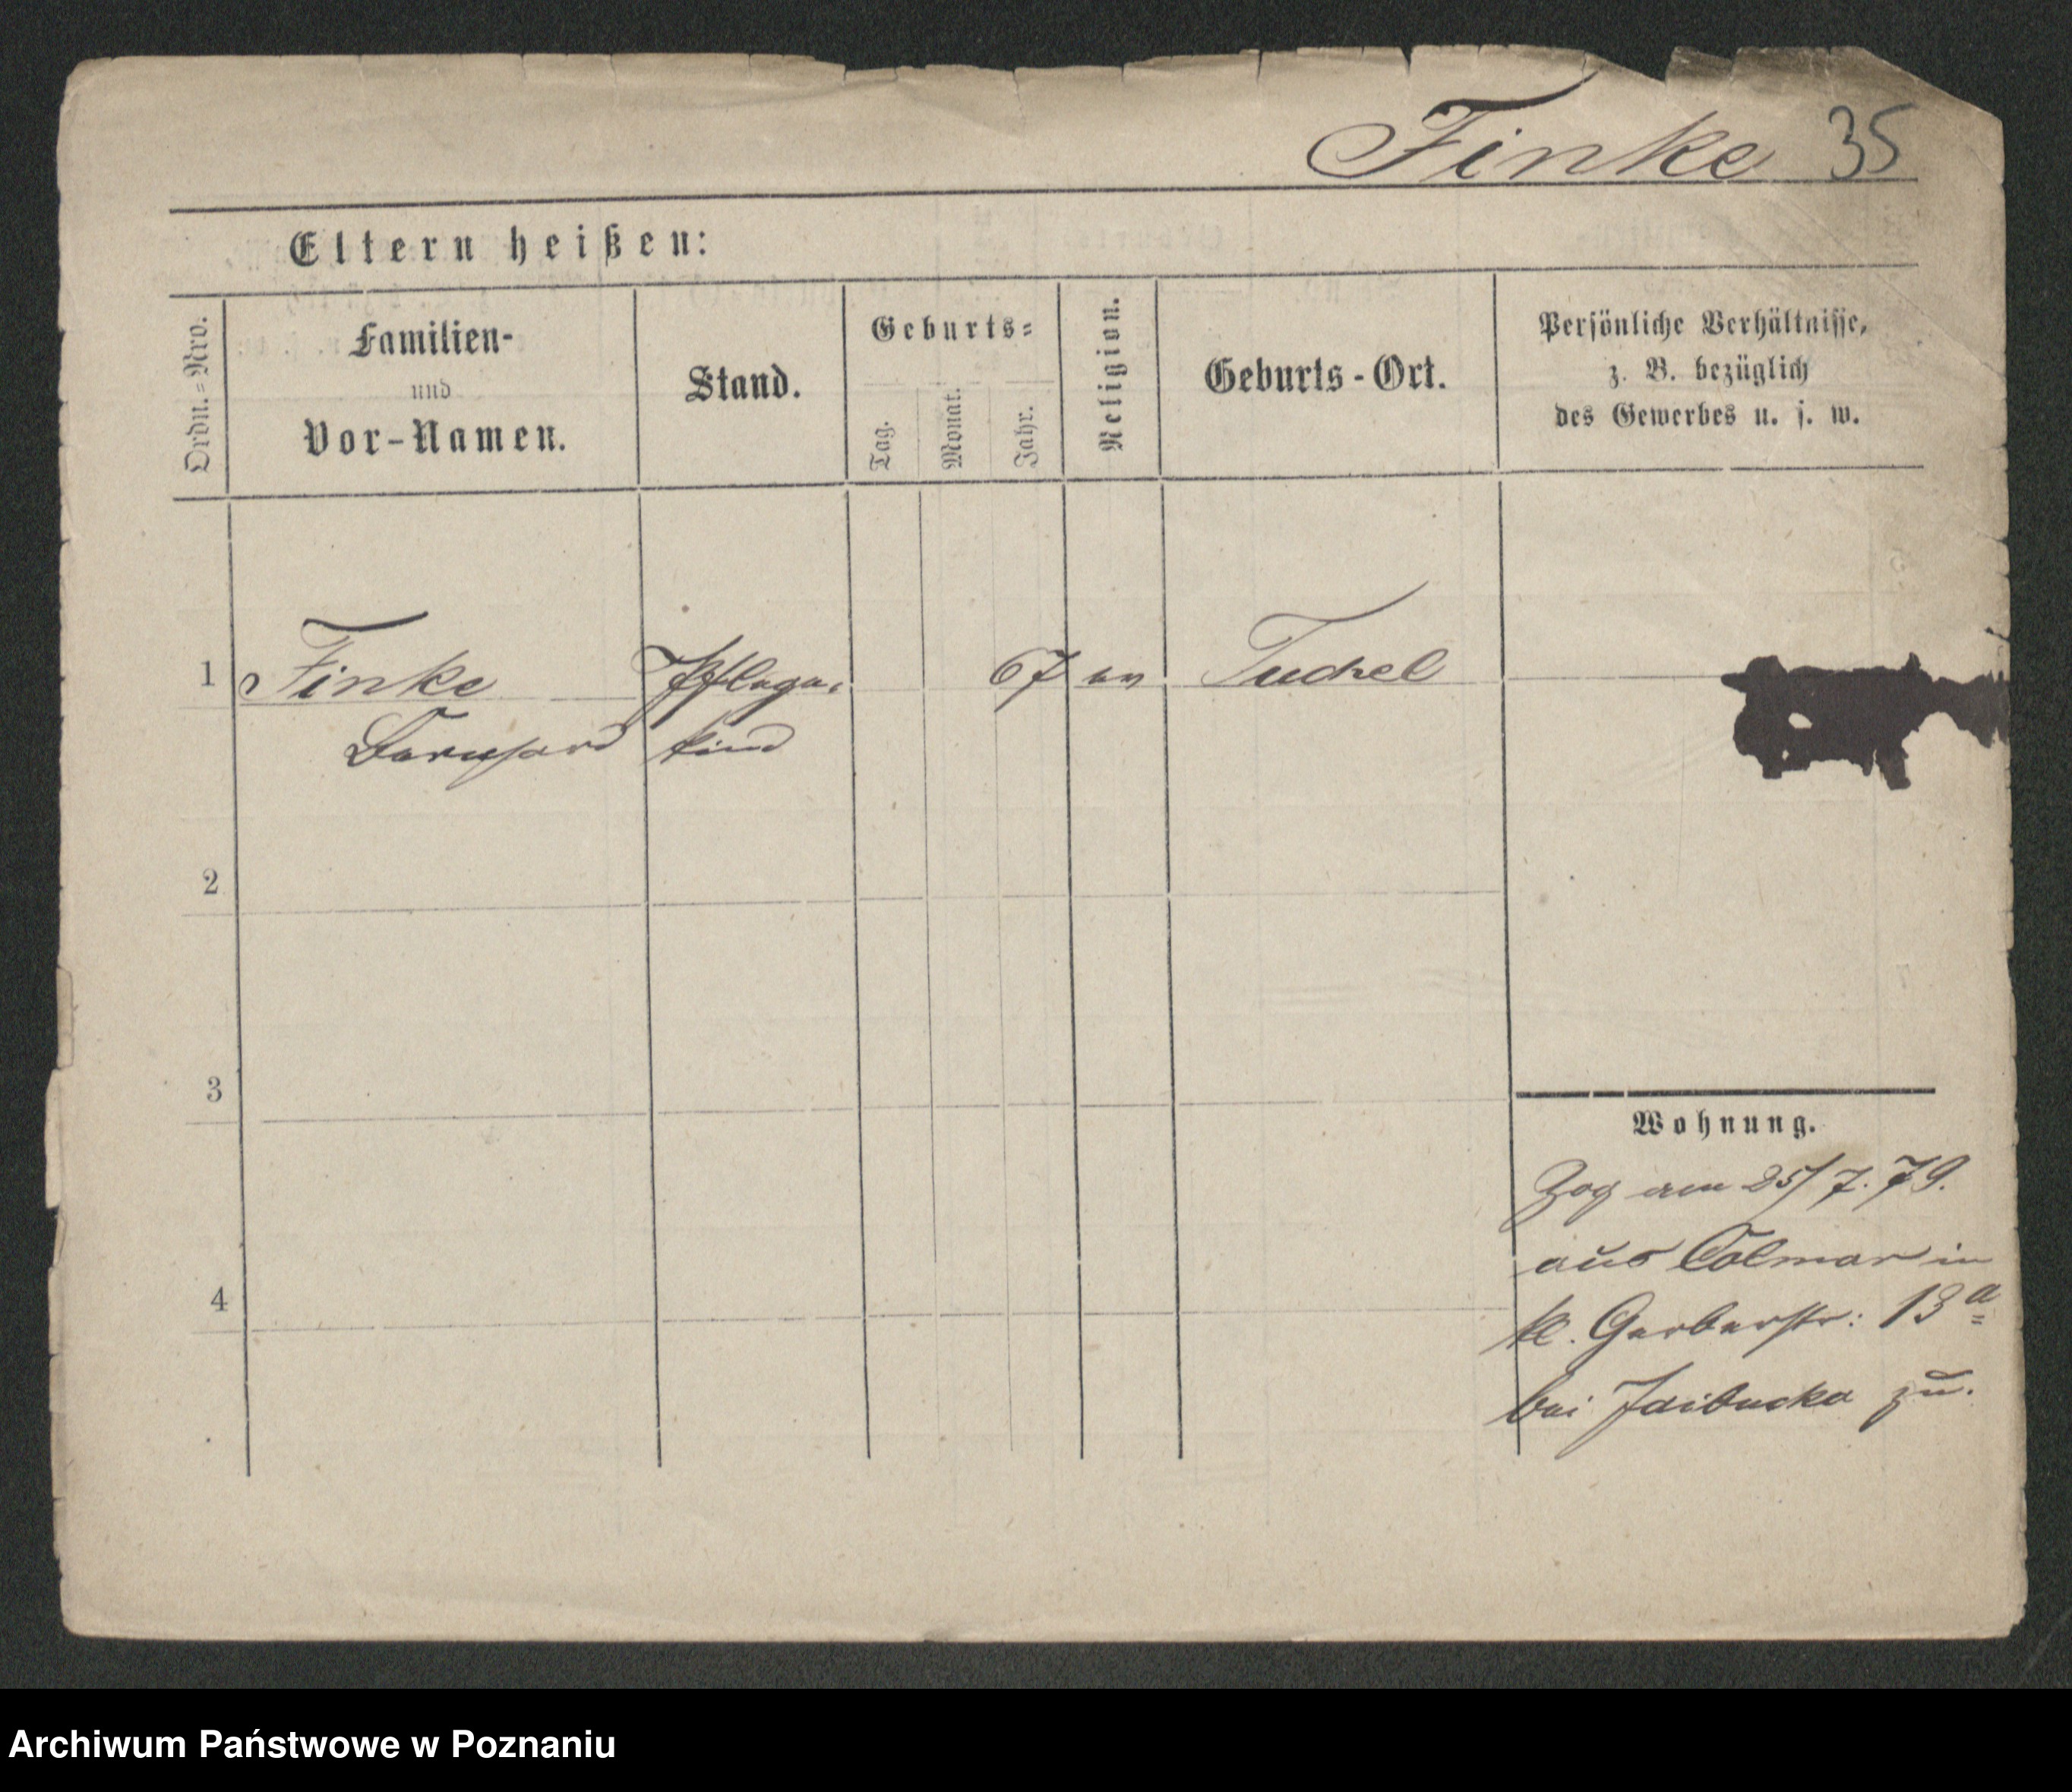 Finke 35
Eltern heißen:
Ordn.=Nro.
Familien-
und
Vor-Namen.
Stand.
Geburts=
Tag.
Monat.
Jahr.
Religion.
Geburts-Ort.
Persönliche Verhältnisse,
z. B. bezüglich
des Gewerbes u. s. w.
1 Finke Pflege- 67 ev Tuchel
Bernhard kind
2
3
4
Wohnung.
Zog am 25/7. 79.
aus Colmar in
kl. Gerberstr: 13 a
bei zu.
Archiwum Państwowe w Poznaniu